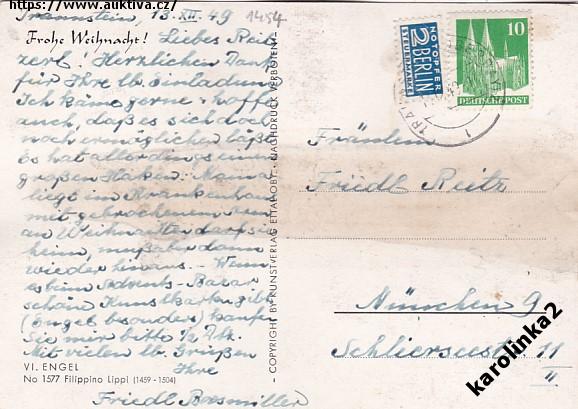 https://www.auktiva.cz/
Traunstein, 13. XII. 49
1454
Frohe Weihnacht! Liebes Reit-
zerl! Herzlichen Dank
für Ihre lb. Einladung
Ich käme gerne + hoffe
auch, daß es sich doch
noch ermöglichen läßt.
Es hat allerdings einen
großen Haken: Mama
liegt im Krankenhaus
mit gebrochenem
an Weihnachten darf sie
heim, muß aber dann
wieder hinaus. – Wenn
es beim Advents-Basar
schöne Kunstkarten gibt
(Engel besonders) kaufen
Sie mir bitte ½ Dtz.
Mit vielen lb. Grüßen
Ihre
Friedl
VI. ENGEL
No 1577 Filippino Lippi (1459 - 1504)
- COPYRIGHT BY KUNSTVERLAG ETTAL/OBB. - NACHDRUCK VERBOTEN! -
NOTOPFER
2 BERLIN
STEUERMARKE
10
DEUTSCHE POST
Fräulein
Friedl Reitz
München 9
Schlierseestr. 11
II
karolinka2